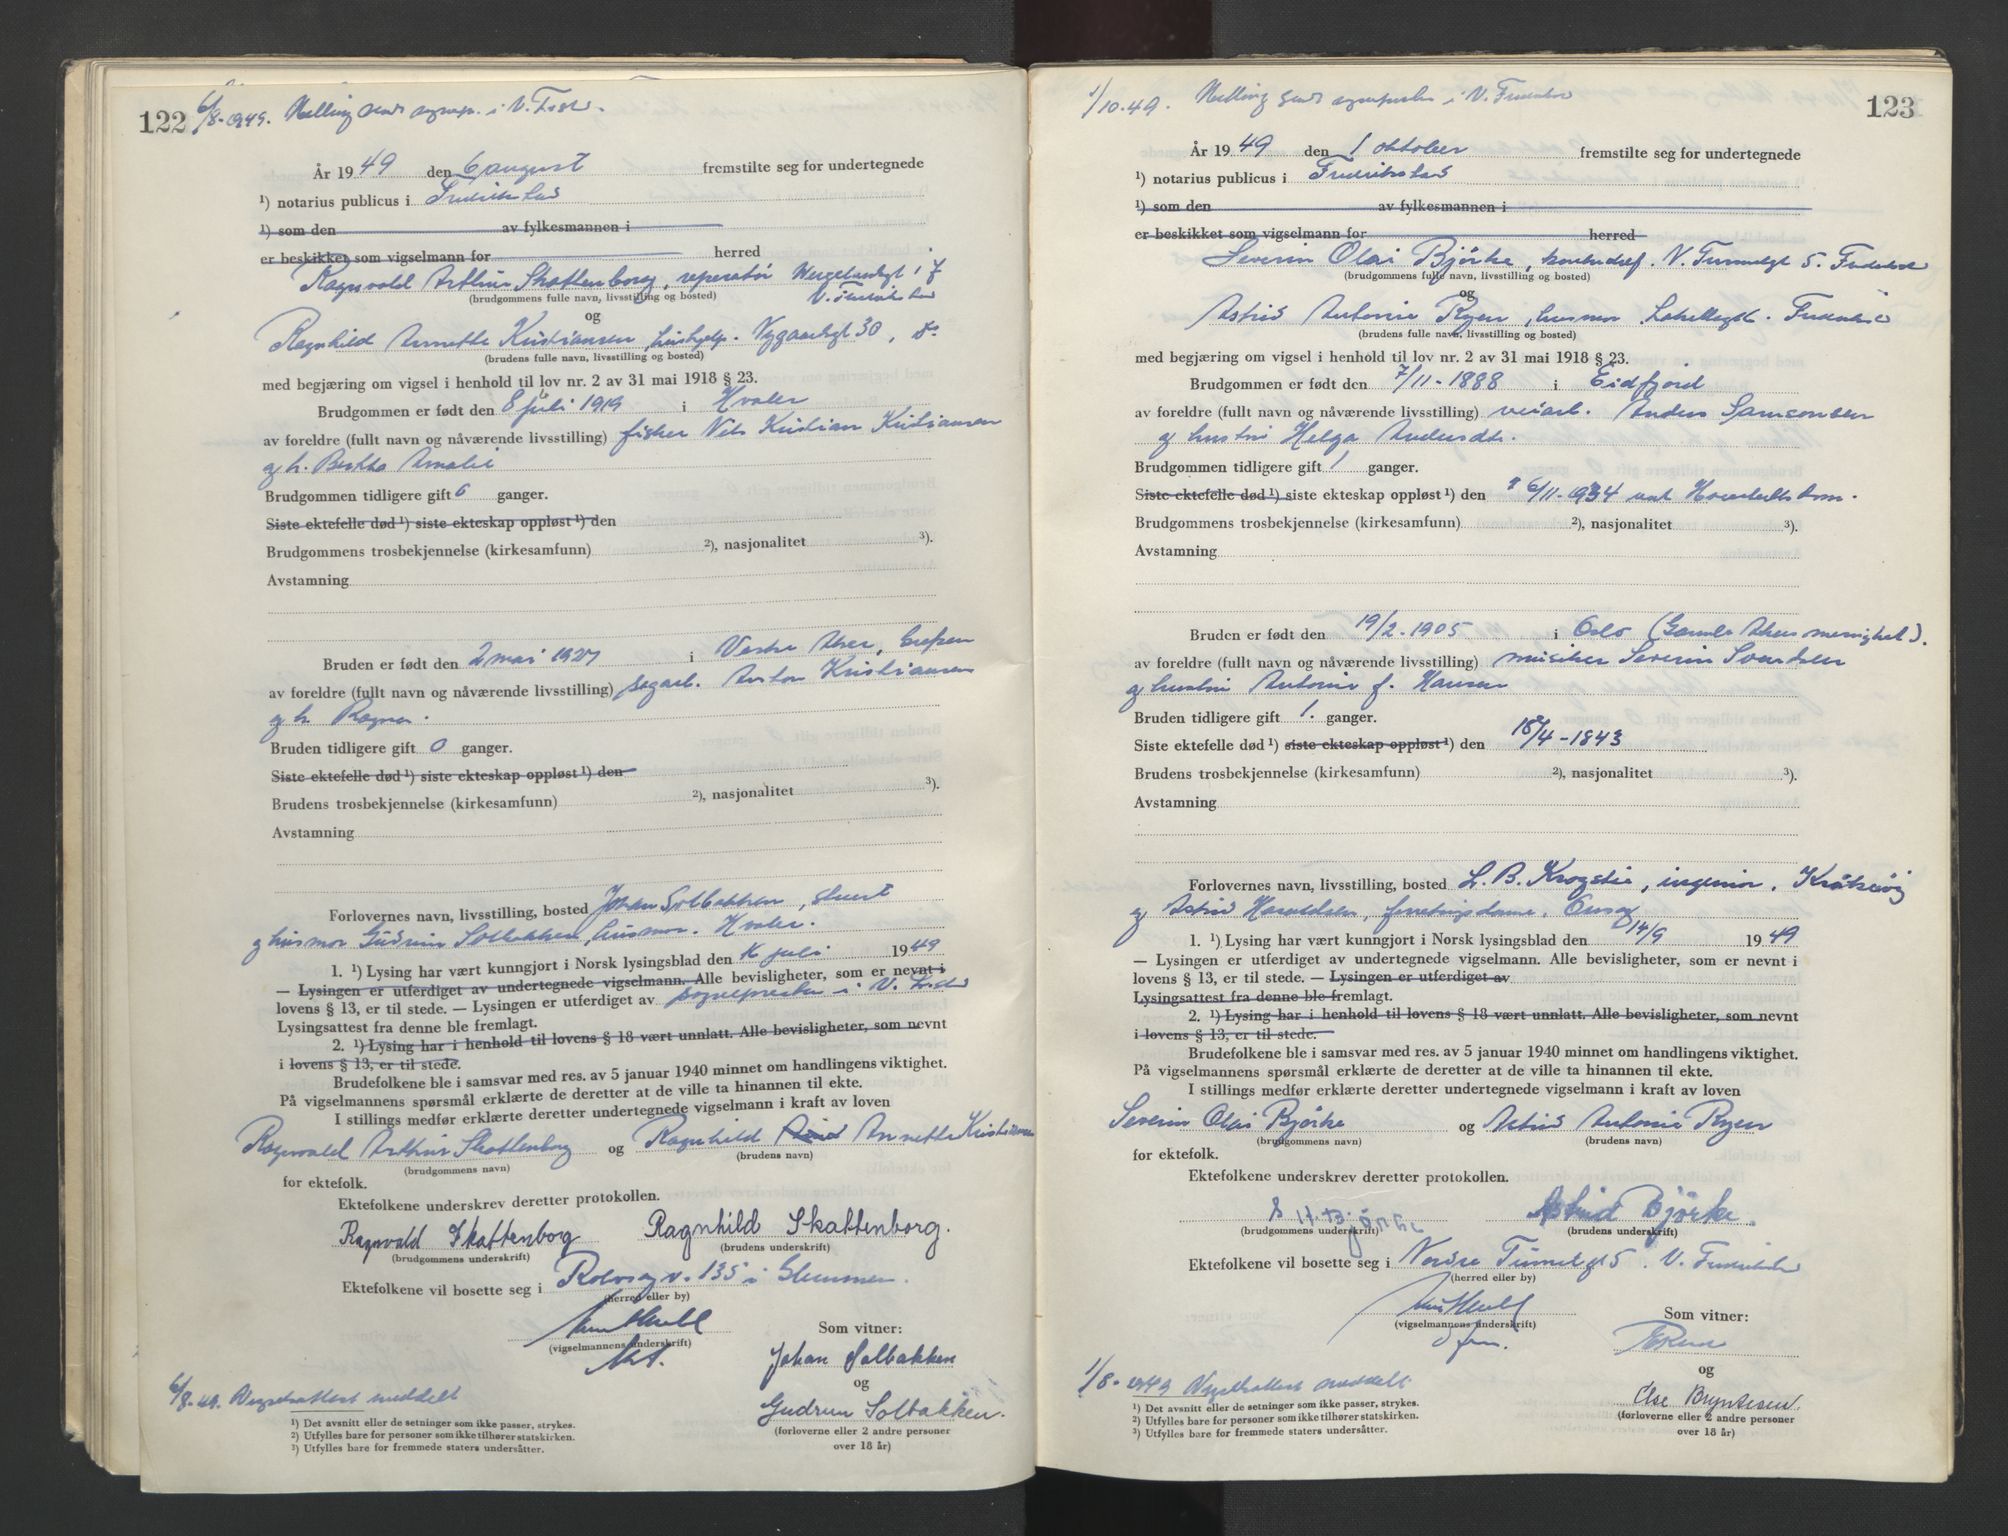 122
6/8-1949. Melding sendt sognepr. i V. Fr.stad.
År 1949 den 6 august fremstilte seg for undertegnede
¹) notarius publicus i Fredrikstad
¹) som den av fylkesmannen i
er beskikket som vigselmann for herred
Ragnvald Arthur Skattenborg, reperatør
V. Fredrikstad
(brudgommens fulle navn, livsstilling og bosted)
og
Ragnhild Annette Kristiansen, hushjelp. 30, do
(brudens fulle navn, livsstilling og bosted)
med begjæring om vigsel i henhold til lov nr. 2 av 31 mai 1918 § 23.
Brudgommen er født den 8 juli 1919 i Hvaler
av foreldre (fullt navn og nåværende livsstilling) fisker Nils Kristian Kristiansen
og h. Bertha Amalie
Brudgommen tidligere gift 0 ganger.
Siste ektefelle død ¹) siste ekteskap oppløst ¹) den
Brudgommens trosbekjennelse (kirkesamfunn) ²), nasjonalitet ³).
Avstamning
Bruden er født den 2 mai 1927 i Vestre Aker,
av foreldre (fullt navn og nåværende livsstilling) Anton Kristiansen
og h. Ragna.
Bruden tidligere gift 0 ganger.
Siste ektefelle død ¹) siste ekteskap oppløst ¹) den
Brudens trosbekjennelse (kirkesamfunn) ²), nasjonalitet ³).
Avstamning
Forlovernes navn, livsstilling, bosted Johan Solbakken, stuert
og husmor Gudrun Solbakken, husmor. Hvaler.
1. ¹) Lysing har vært kunngjort i Norsk lysingsblad den 16 juli 1949
— Lysingen er utferdiget av undertegnede vigselmann. Alle bevisligheter, som er nevnt i
lovens § 13, er til stede. — Lysingen er utferdiget av sognepresten i V. Fr.stad
Lysingsattest fra denne ble fremlagt.
2. ¹) Lysing har i henhold til lovens § 18 vært unnlatt. Alle bevisligheter, som nevnt
i lovens § 13, er til stede.
Brudefolkene ble i samsvar med res. av 5 januar 1940 minnet om handlingens viktighet.
På vigselmannens spørsmål erklærte de deretter at de ville ta hinannen til ekte.
I stillings medfør erklærte deretter undertegnede vigselmann i kraft av loven
Ragnvald Arthur Skattenborg og Ragnhild Annette Kristiansen
(brudgommens navn) (brudens navn)
for ektefolk.
Ektefolkene underskrev deretter protokollen.
Ragnvald Skattenborg Ragnhild Skattenborg.
(brudgommens underskrift) (brudens underskrift)
Ektefolkene vil bosette seg i Rolvsøyv. 135 i Glemmen.
(herred eller by)
(vigselmannens underskrift)
Som vitner:
Johan Solbakken
og
Gudrun Solbakken.
(forloverne eller 2 andre personer
over 18 år)
6/8-49. Vigselsattest meddelt
¹) Det avsnitt eller de setninger som ikke passer, strykes.
²) Utfylles bare for personer som ikke tilhører statskirken.
³) Utfylles bare for fremmede staters undersåtter.
123
1/10-49. Melding sendt sognepresten i V. Fredrikstad
År 1949 den 1 oktober fremstilte seg for undertegnede
¹) notarius publicus i Fredrikstad
¹) som den av fylkesmannen i
er beskikket som vigselmann for herred
Severin Olai Bjørke, N. Tunnelgt 5. Fredrikstad
(brudgommens fulle navn, livsstilling og bosted)
og
Astrid Antonie Ryen, husmor Fredrikstad
(brudens fulle navn, livsstilling og bosted)
med begjæring om vigsel i henhold til lov nr. 2 av 31 mai 1918 § 23.
Brudgommen er født den 7/11-1888 i Eidfjord
av foreldre (fullt navn og nåværende livsstilling) veiarb. Anders Samsonsen
og hustru Helga Andersdtr.
Brudgommen tidligere gift 1 ganger.
Siste ektefelle død ¹) siste ekteskap oppløst ¹) den 6/11-1934 ved dom.
Brudgommens trosbekjennelse (kirkesamfunn) ²), nasjonalitet ³).
Avstamning
Bruden er født den 19/2-1905 i Oslo (Gamle Aker menighet).
av foreldre (fullt navn og nåværende livsstilling) musiker Severin Svendsen
og hustru Antonie f. Hansen
Bruden tidligere gift 1. ganger.
Siste ektefelle død ¹) siste ekteskap oppløst ¹) den 18/4-1843
Brudens trosbekjennelse (kirkesamfunn) ²), nasjonalitet ³).
Avstamning
Forlovernes navn, livsstilling, bosted L. B. Krogstie, ingeniør, Kråkerøy
og Astrid Haraldsen, forretningsdame, Onsøy
1. ¹) Lysing har vært kunngjort i Norsk lysingsblad den 14/9 1949
— Lysingen er utferdiget av undertegnede vigselmann. Alle bevisligheter, som er nevnt i
lovens § 13, er til stede. — Lysingen er utferdiget av
Lysingsattest fra denne ble fremlagt.
2. ¹) Lysing har i henhold til lovens § 18 vært unnlatt. Alle bevisligheter, som nevnt
i lovens § 13, er til stede.
Brudefolkene ble i samsvar med res. av 5 januar 1940 minnet om handlingens viktighet.
På vigselmannens spørsmål erklærte de deretter at de ville ta hinannen til ekte.
I stillings medfør erklærte deretter undertegnede vigselmann i kraft av loven
Severin Olai Bjørke og Astrid Antonie Ryen
(brudgommens navn) (brudens navn)
for ektefolk.
Ektefolkene underskrev deretter protokollen.
Bjørke Astrid Bjørke.
(brudgommens underskrift) (brudens underskrift)
Ektefolkene vil bosette seg i Nordre Tunnelgt 5. V. Fredrikstad
(herred eller by)
(vigselmannens underskrift)
Som vitner:
og
Else Bryntesen.
(forloverne eller 2 andre personer
over 18 år)
1/8-1949 Vigselsattest meddelt
¹) Det avsnitt eller de setninger som ikke passer, strykes.
²) Utfylles bare for personer som ikke tilhører statskirken.
³) Utfylles bare for fremmede staters undersåtter.